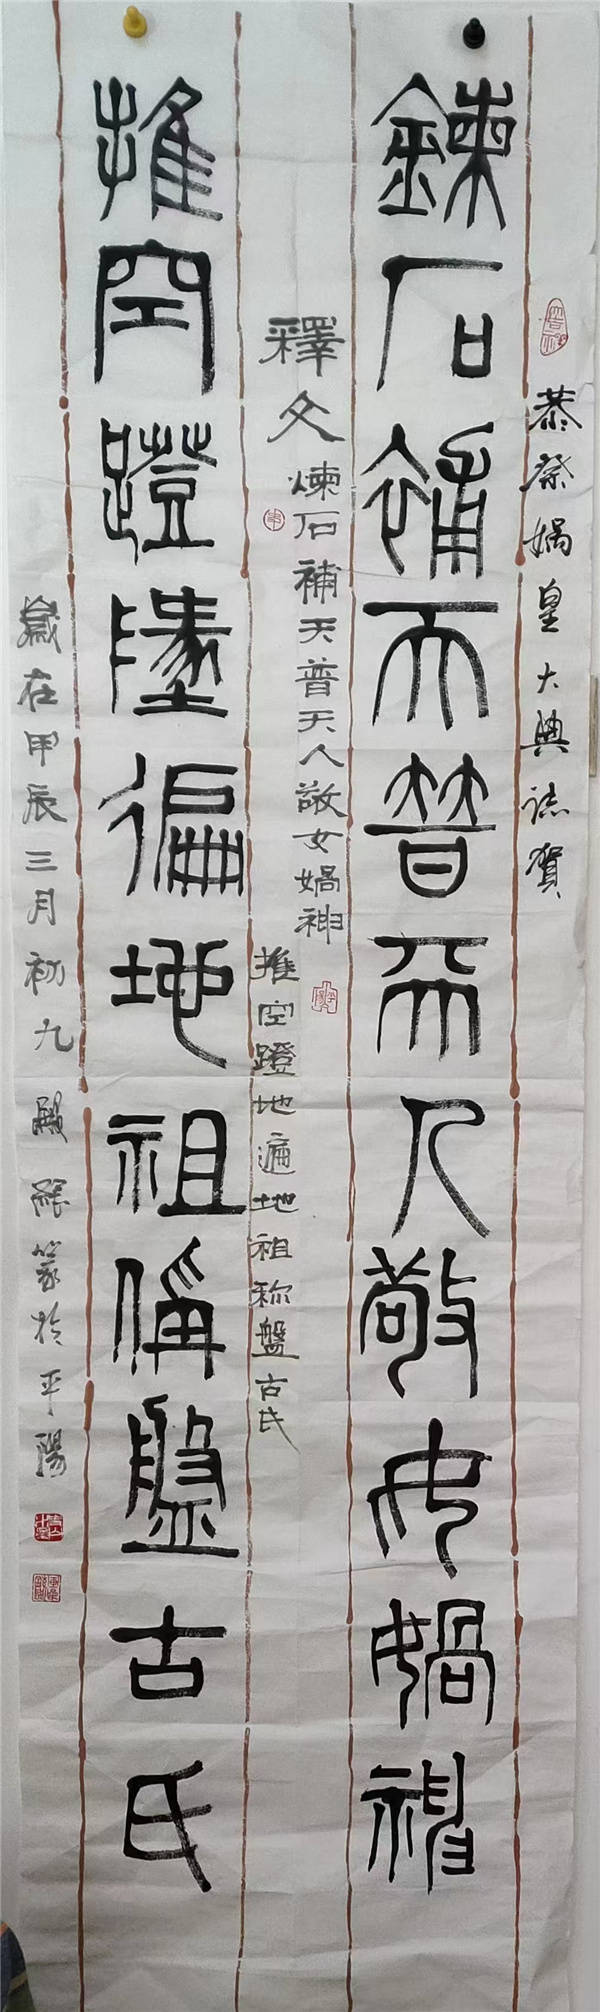 恭祭媧皇大典誌賀
鍊石補天普天人敬女媧神
釋文
煉石補天普天人敬女媧神
推空蹬地遍地祖称盤古氏
推空蹬墬徧地祖偁盤古氏
歲在甲辰三月初九 殿 篆於平陽